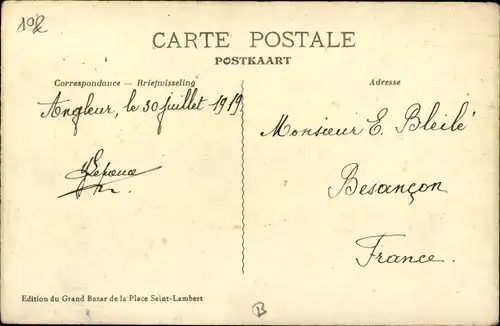 CARTE POSTALE
POSTKAART
Correspondance — Briefwisseling
Adresse
Angleur, le 30 juillet 1919.
Monsieur E. Bleilé
Besançon
France.
Edition du Grand Bazar de la Place Saint-Lambert
B